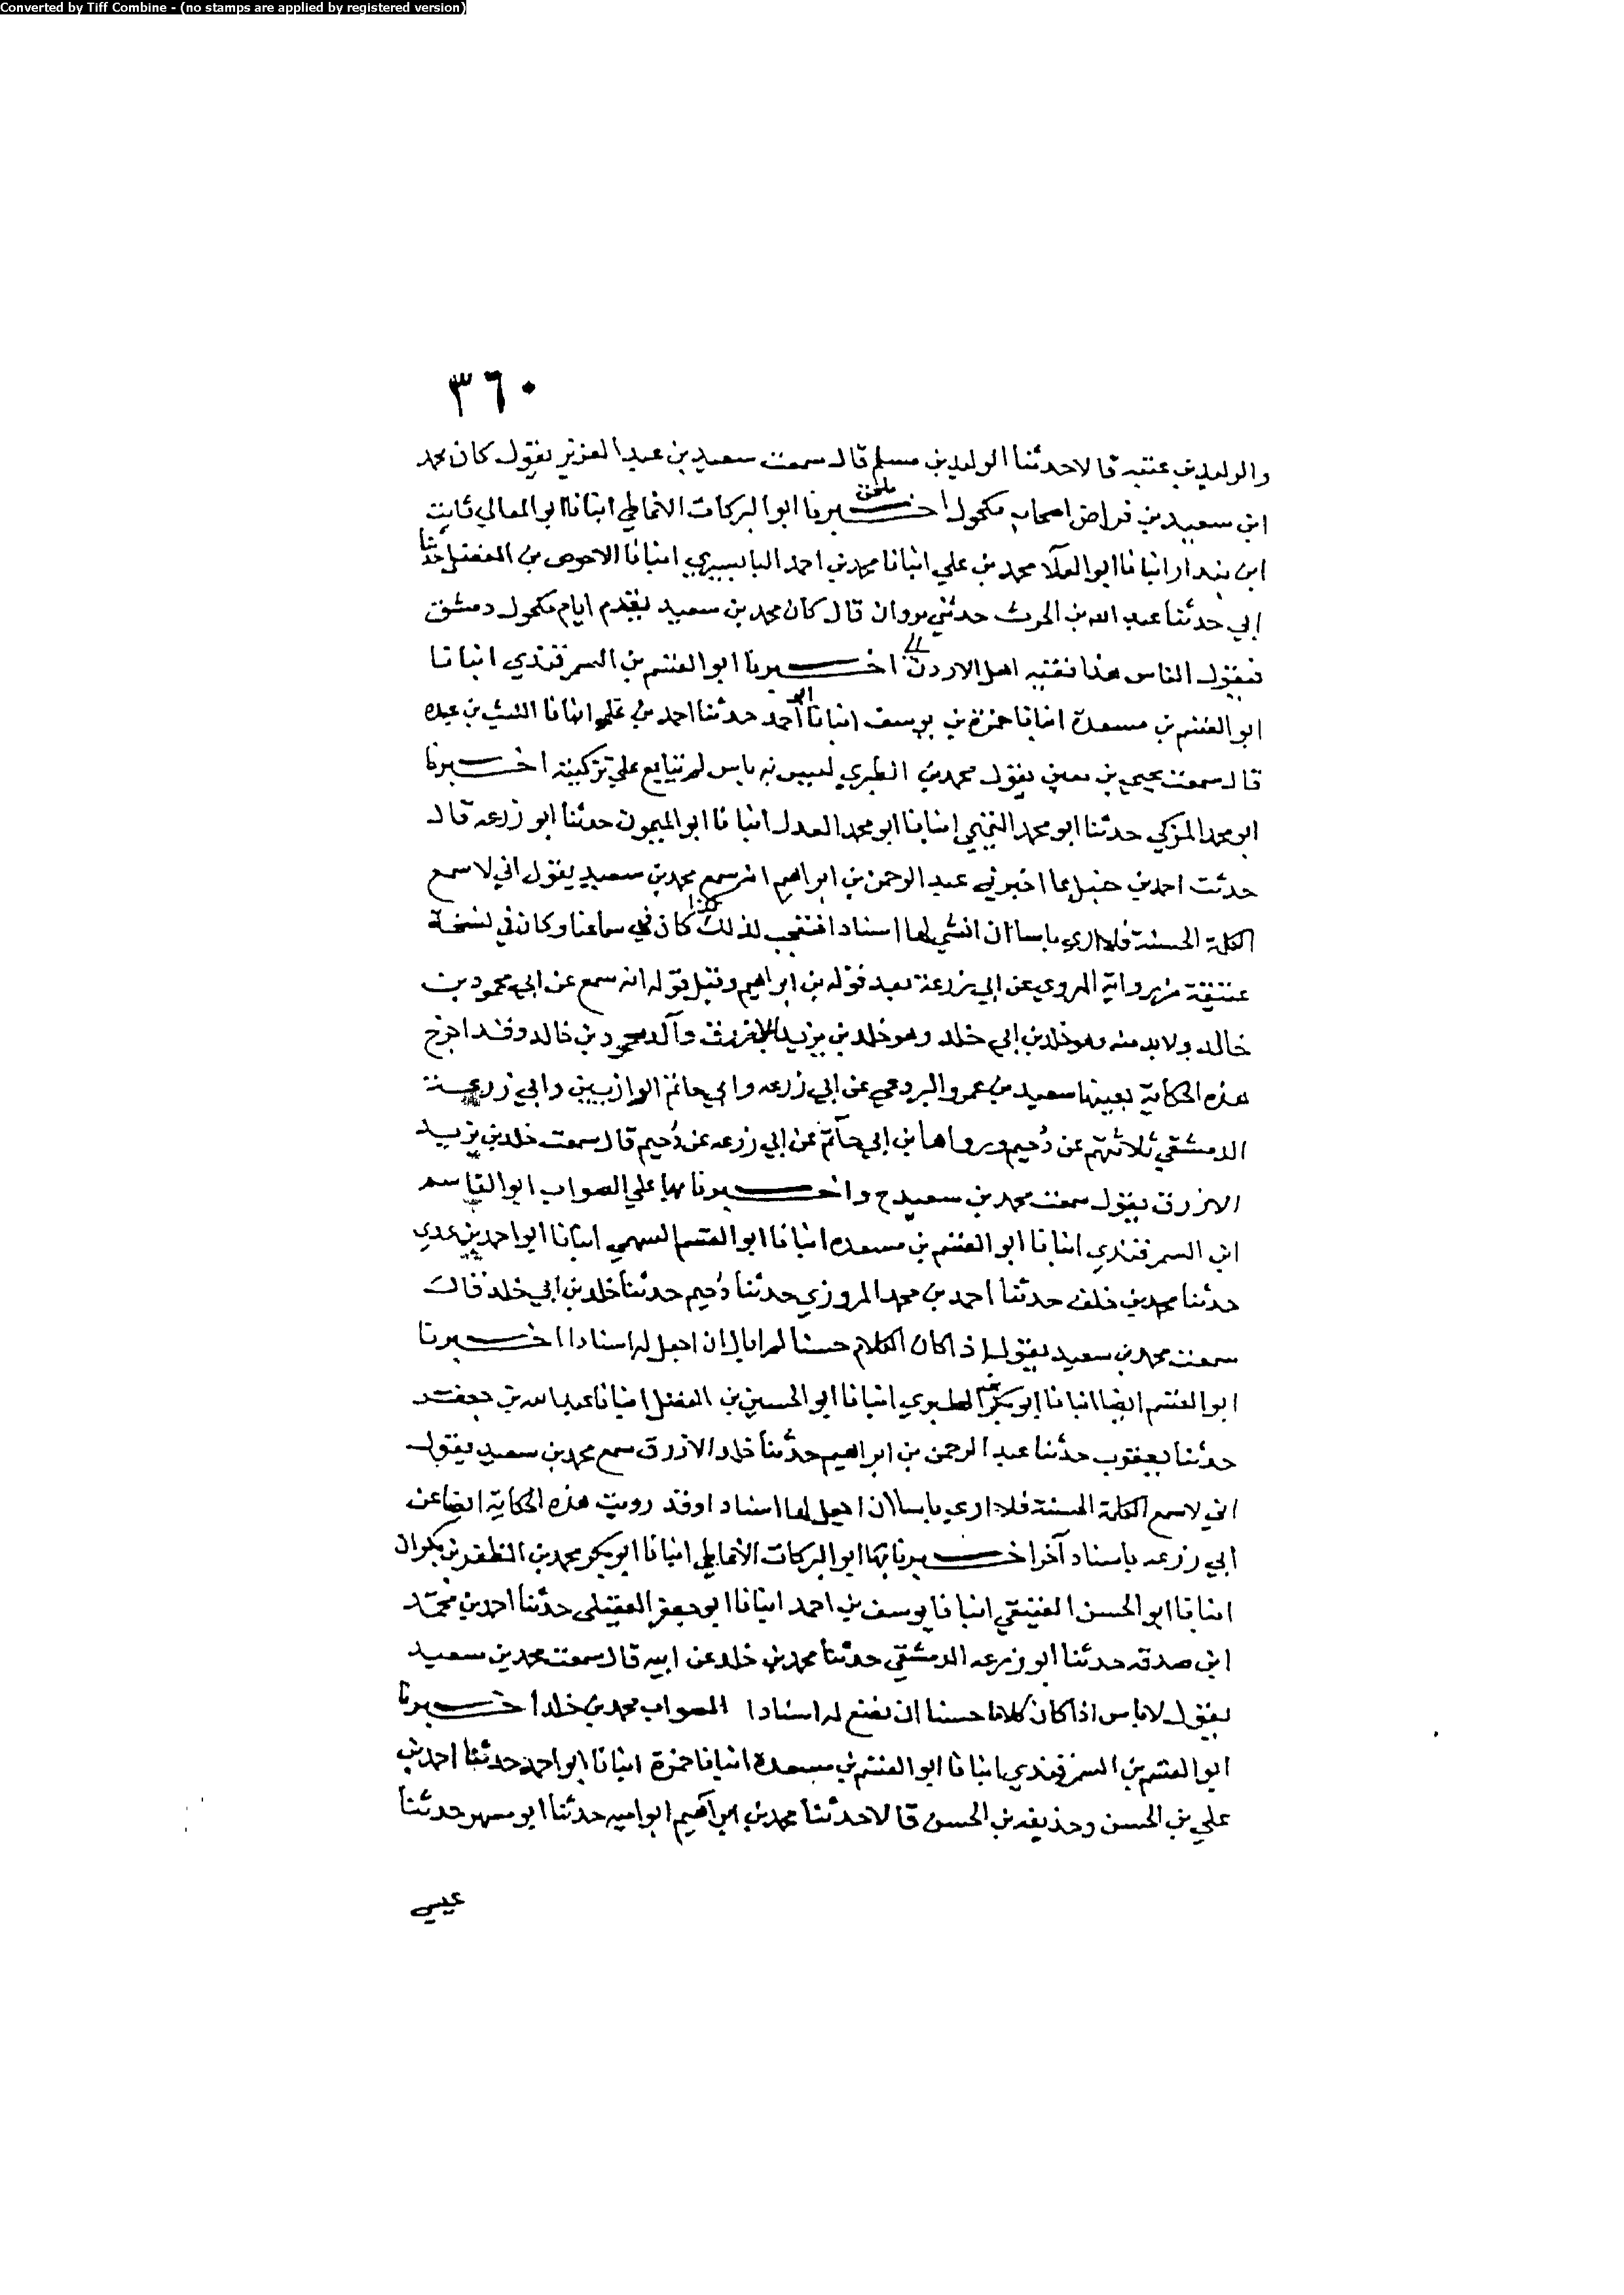 Converted by Tiff Combine - (no stamps are applied by registered version)
٣٦٠
والوليد بن عتبه قالا حدثنا الوليد بن مسلم قال سمعت سعيد بن عبد العزيز يقول كان محمد
ابن سعيد من اصحاب مكحول اخبرنا ابو البركات الانماطي انبانا ابو المعالي ثابت
ابن بندار انبانا ابو العلا محمد بن علي انبانا محمد بن احمد البابسيري انبانا الاحوص بن المفضل حدثنا
ابي حدثنا عبد الله بن الحرث حدثني مروان قال كان محمد بن سعيد يقدم ايام مكحول دمشق
فيقول الناس هذا فقيه اهل الاردن اخبرنا ابو القسم بن السمرقندي انبانا
ابو القسم بن مسعدة انبانا حمزة بن يوسف انبانا ابو احمد حدثنا احمد بن علي انبانا الليث بن عبده
قال سمعت يحيى بن معين يقول محمد بن الطبري ليس به باس لم يتابع علي تزكيته اخبرنا
ابو محمد المزكي حدثنا ابو محمد التميمي انبانا ابو محمد العدل انبانا ابو الميمون حدثنا ابو زرعه قال
حدثت احمد بن حنبل بما اخبرني عبد الرحمن بن ابراهيم انه سمع محمد بن سعيد يقول اني لاسمع
الكلمة الحسنة فلا اري باسا ان انشي لها اسنادا فتعجب لذلك كذا كان في سماعنا وكان في نسخة
عتيقة من رواية المروي عن ابي زرعة بعد قوله بن ابراهيم وقبل قوله انه سمع عن ابي محمود بن
خالد ولا بد منه وهو خلد بن ابي خلد وهو خلد بن يزيد الازرق والد محمود بن خالد وقد اخرج
هذه الحكاية بعينها سعيد بن عمرو البردعي عن ابي زرعه وابي حاتم الرازيين وابي زرعة
الدمشقي ثلاثتهم عن دُحيم ورواها بن ابي حاتم عن ابي زرعه عن دُحيم قال سمعت خلد بن يزيد
الازرق يقول سمعت محمد بن سعيد ح واخبرنا بها علي الصواب ابو القاسم
ابن السمرقندي انبانا ابو القسم بن مسعده انبانا ابو القسم السهمي انبانا ابو احمد بن عدي
حدثنا محمد بن خلف حدثنا احمد بن محمد المروزي حدثنا دُحيم حدثنا خلد بن ابي خلد قال
سمعت محمد بن سعيد يقول اذا كان الكلام حسنا لم ابال ان اجعل له اسنادا اخبرنا
ابو القسم ايضا انبانا ابو بكر بن الطبري انبانا ابو الحسين بن الفضل انبانا عبد الله بن جعفر
حدثنا يعقوب حدثنا عبد الرحمن بن ابراهيم حدثنا خلد الازرق سمع محمد بن سعيد يقول
اني لاسمع الكلمة الحسنة فلا اري باسا ان اجعل لها اسنادا وقد رويت هذه الحكاية ايضا عن
ابي زرعه باسناد آخر اخبرنا بها ابو البركات الانماطي انبانا ابو بكر محمد بن المظفر بن بكران
انبانا ابو الحسن العتيقي انبانا يوسف بن احمد انبانا ابو جعفر العقيلي حدثنا احمد بن محمّد
ابن صدقه حدثنا ابو زرعه الدمشقي حدثنا محمد بن خلد عن ابيه قال سمعت محمد بن سعيد
يقول لا باس اذا كان كلاما حسنا ان تضع له اسنادا الصواب محمد بن خلد اخبرنا
ابو القسم بن السمرقندي انبانا ابو القسم بن مسعدة انبانا حمزة انبانا ابو احمد حدثنا احمد بن
علي بن الحسن وحذيفه بن الحسن قالا حدثنا محمد بن ابراهيم ابو اميه حدثنا ابو مسهر حدثنا
عيسي